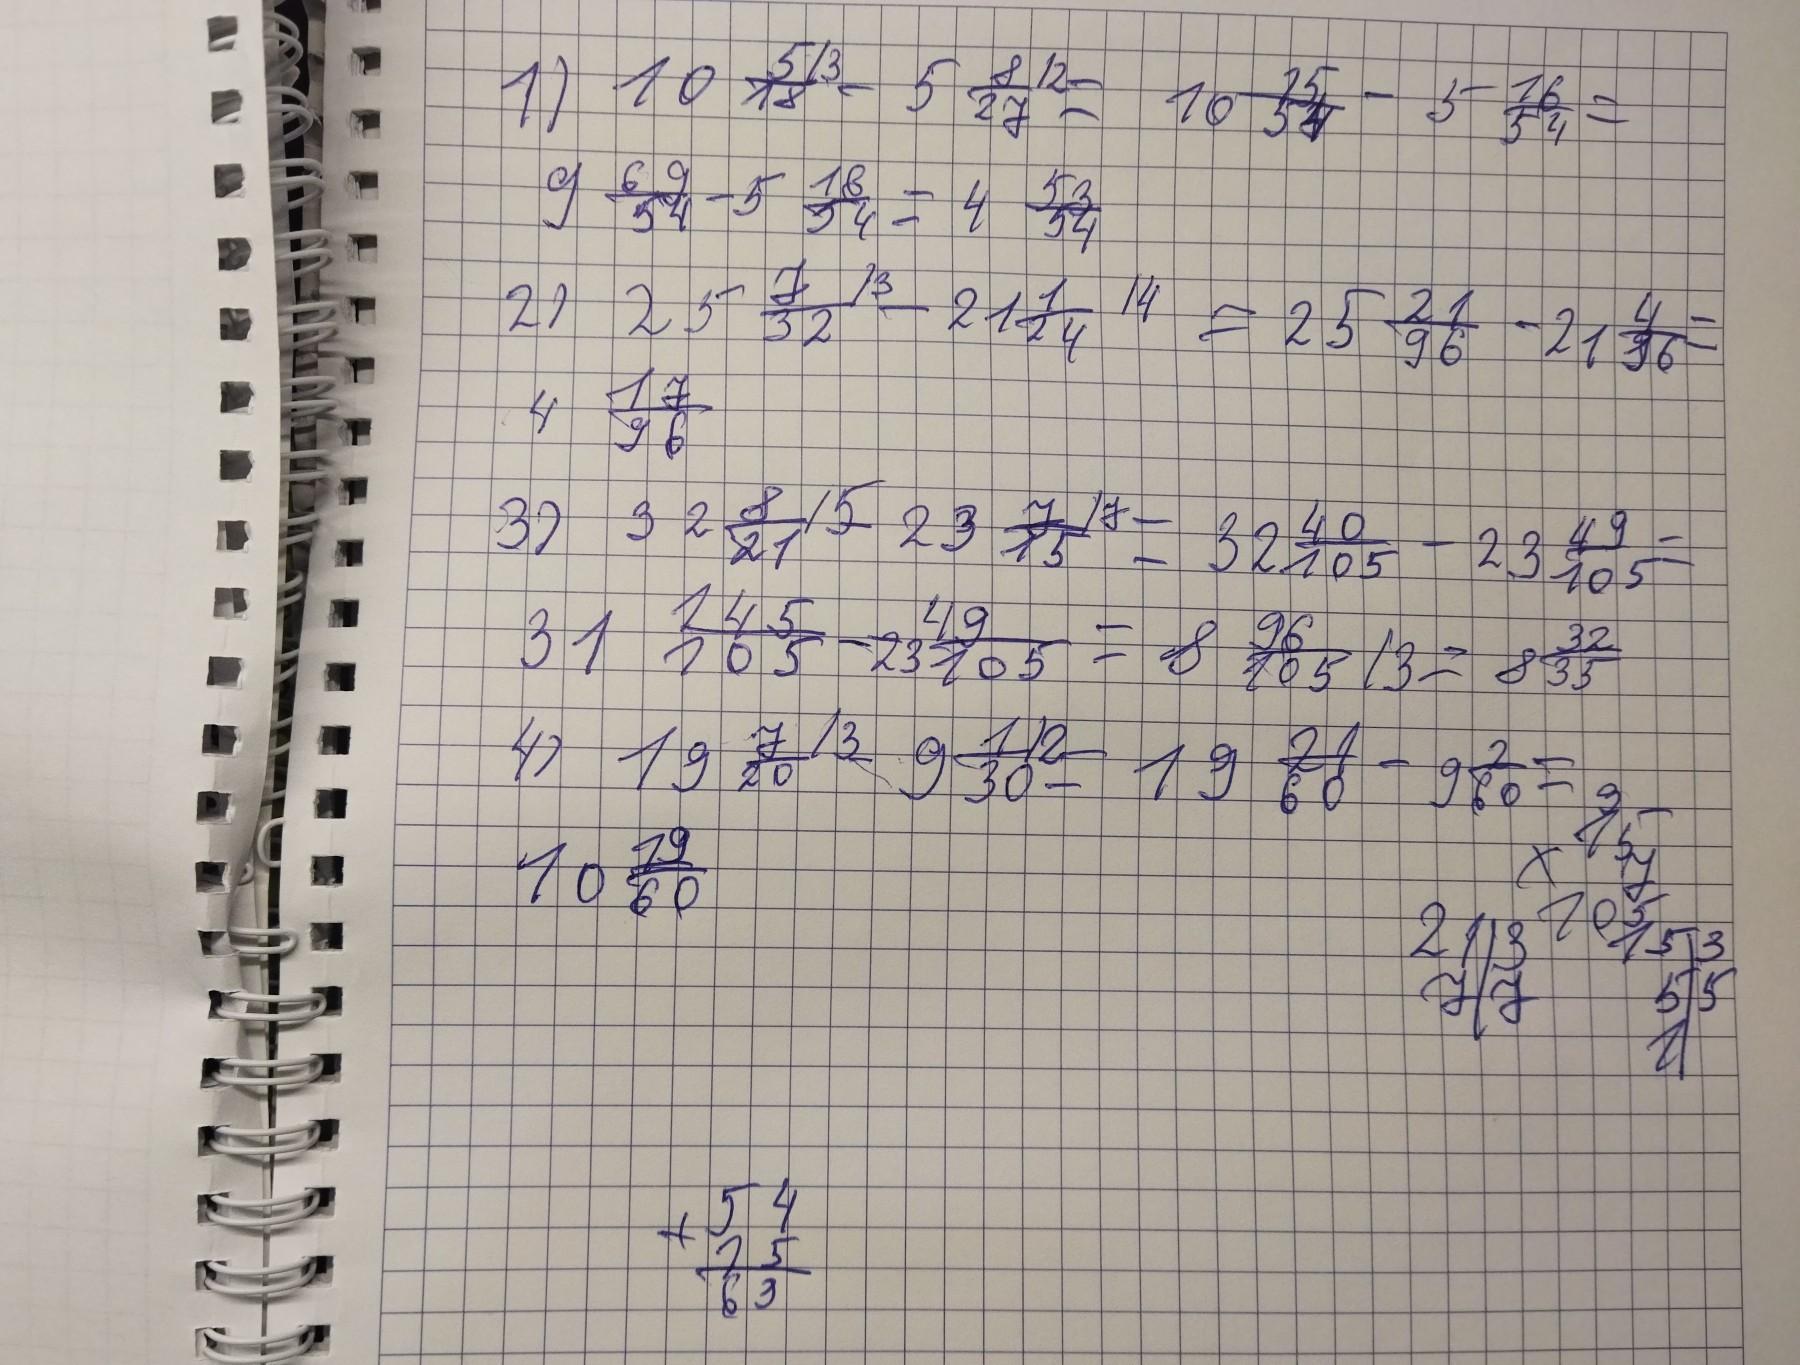 1) 10 5/18 /3 - 5 8/27 /2 = 10 15/54 - 5 16/54 =
9 69/54 - 5 16/54 = 4 53/54
2) 25 7/32 /3 - 21 1/24 /4 = 25 21/96 - 21 4/96 =
4 17/96
3) 32 8/21 /5 - 23 7/15 /7 = 32 40/105 - 23 49/105 =
31 145/105 - 23 49/105 = 8 96/105 /3 = 8 32/35
4) 19 7/20 /3 - 9 1/30 /2 = 19 21/60 - 9 2/60 =
10 19/60
15
x 7
105
21 | 3
7 | 7
15 | 3
5 | 5
1
+ 54
15
63